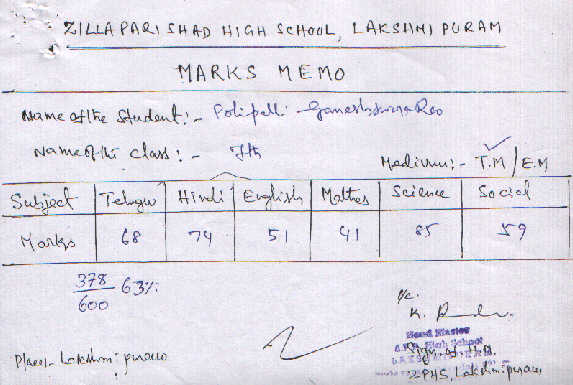 ZILLA PARISHAD HIGH SCHOOL, LAKSHMIPURAM
MARKS MEMO
Name of the Student:- Polipalli
Name of the Class:- 7th
Medium:- T.M/E.M
Subject Telugu Hindi English Maths Science Social
Marks 68 74 51 41 85 59
378/600 63%
K.
Head Master
High School
Place:- Lakshmipuram
ZPHS, Lakshmipuram